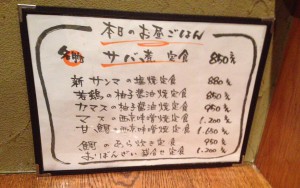 本日のお昼ごはん
名物 サバ煮 定食 850え
新サンマの塩焼定食 880え
若鶏の柚子醤油焼定食 850え
カマスの柚子醤油焼定食 950え
マスの西京味噌焼定食 1.200え
甘鯛の西京味噌焼定食
鯛のあら炊き定食 950え
おばんざい 定食 1.200え